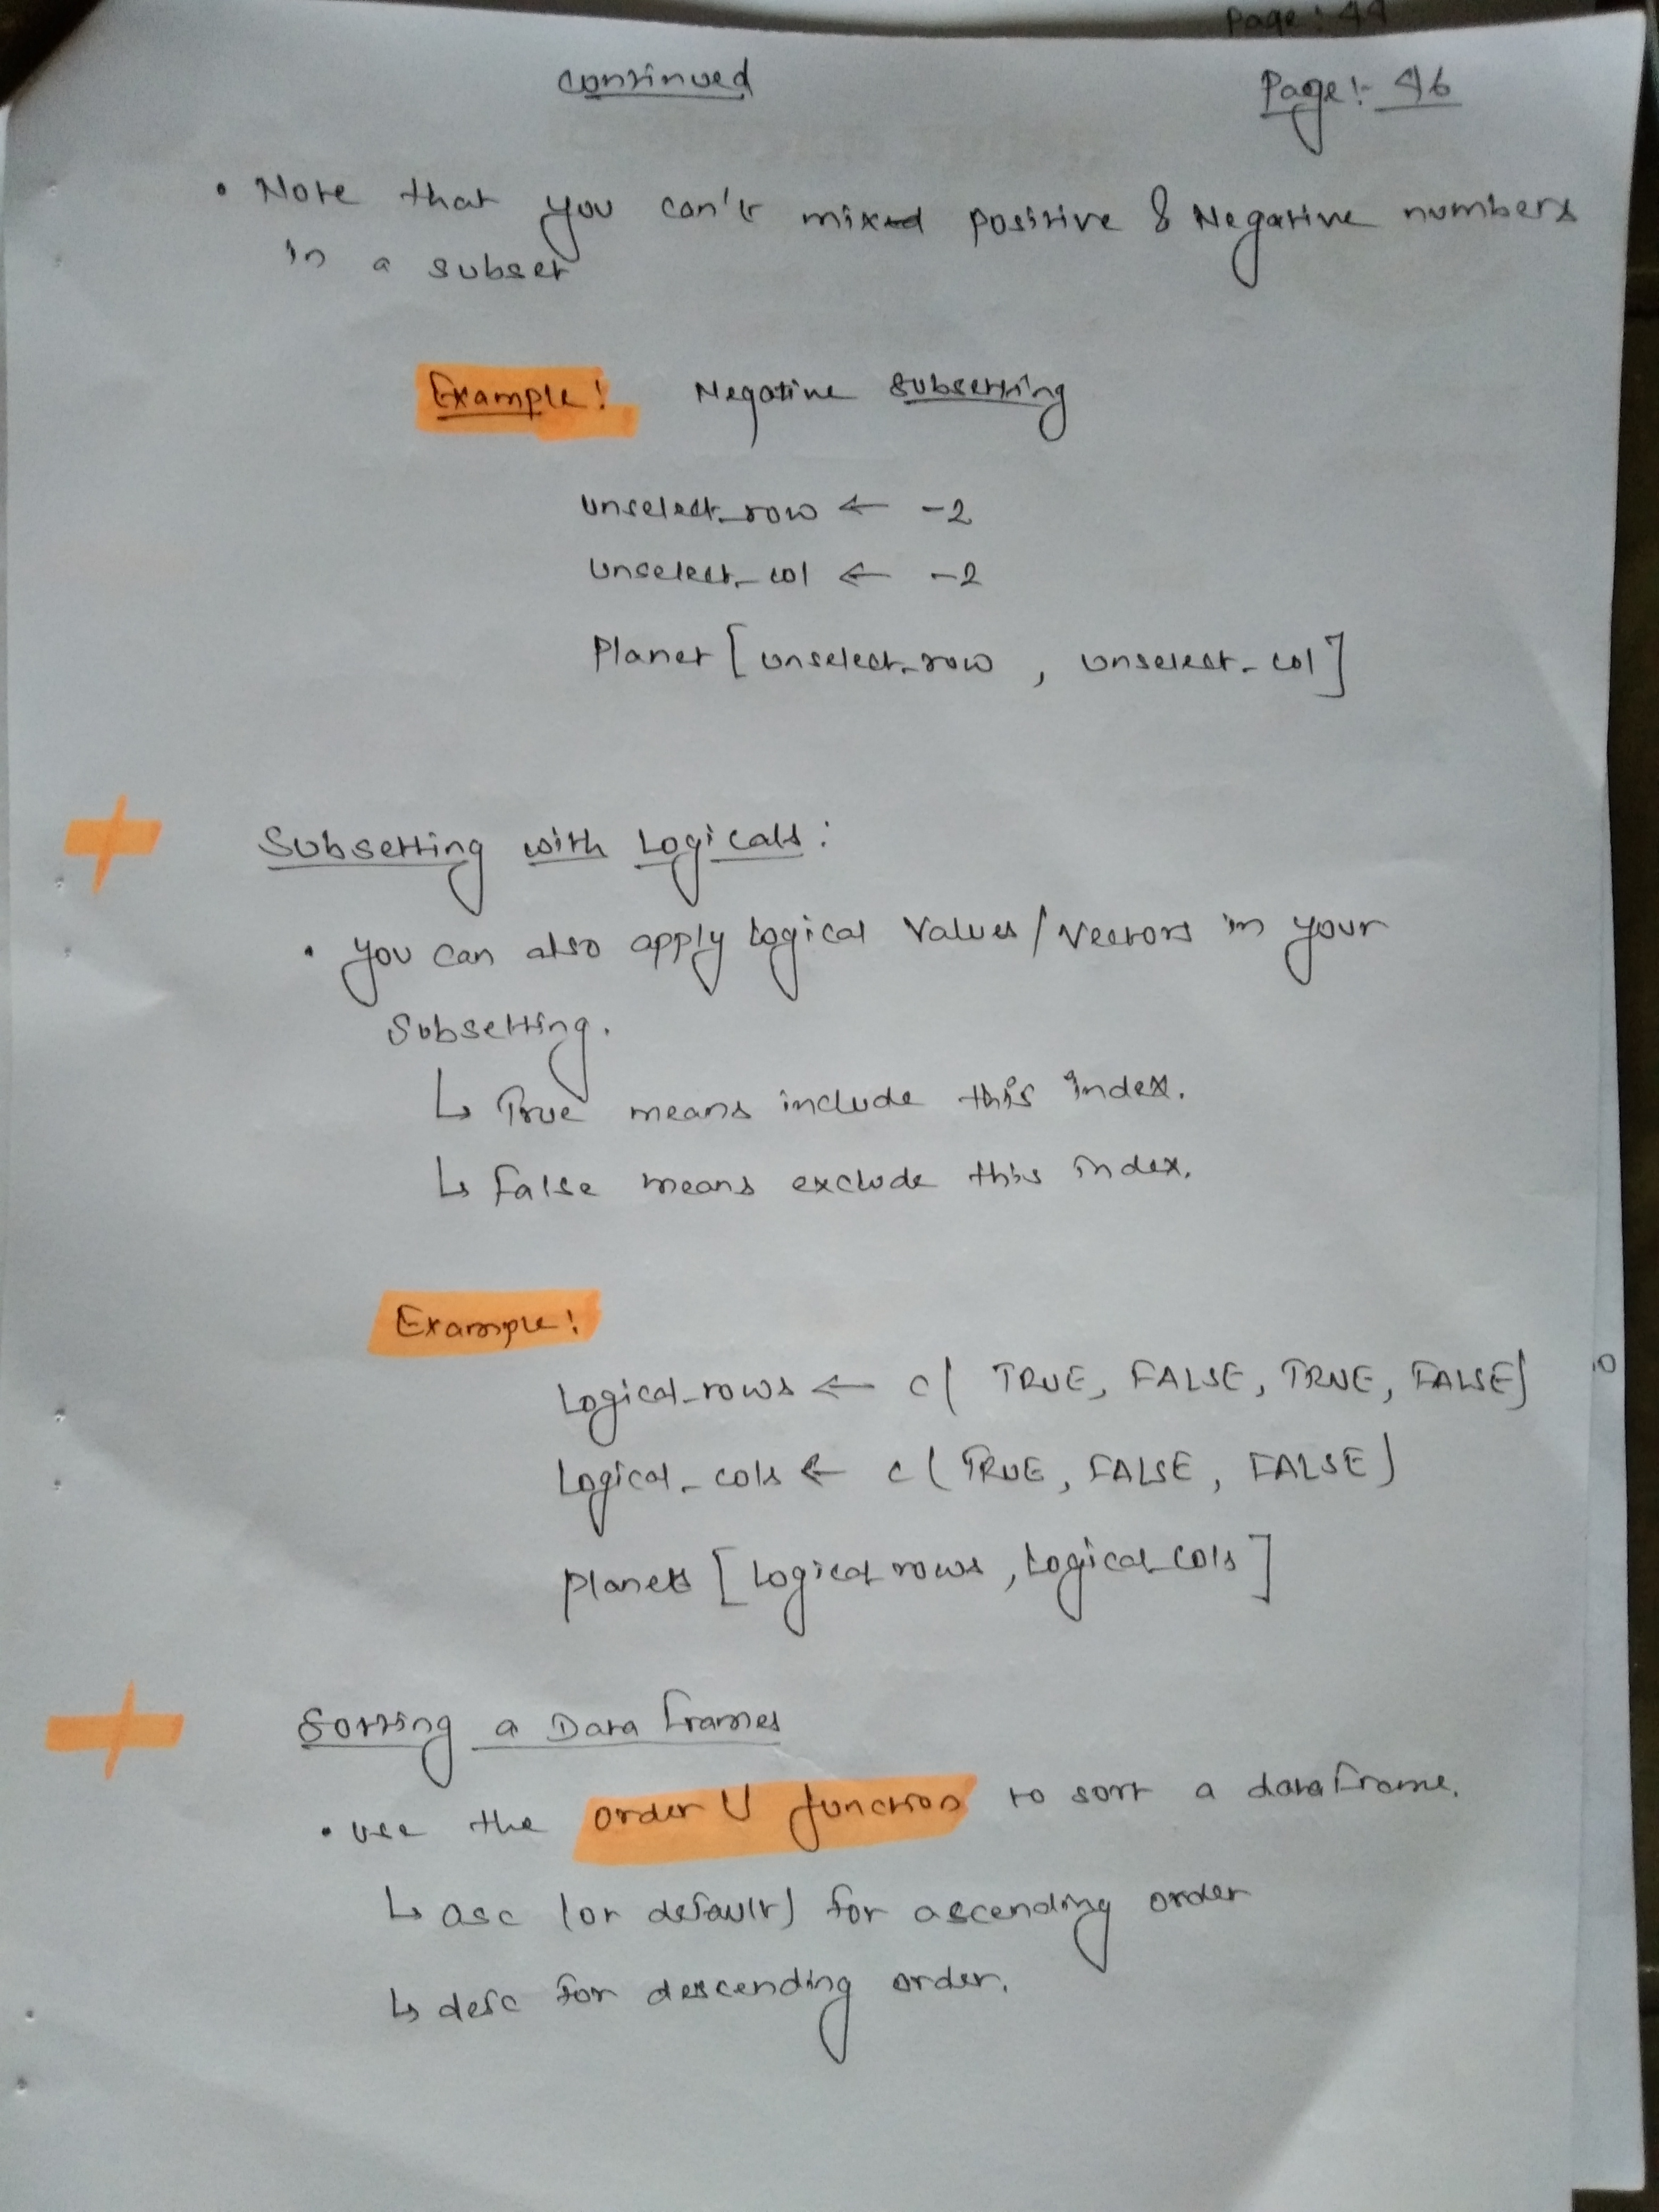 Page: 44
Continued
Page:- 46
• Note that you can't mixed positive & Negative numbers
in a subset
Example: Negative Subsetting
unselect_row ← -2
unselect_col ← -2
Planet [unselect_row , unselect_col]
Subsetting with Logicals:
• you can also apply Logical Values/Vectors in your
Subsetting.
↳ True means include this index.
↳ False means exclude this index.
Example:
Logical_rows ← c( TRUE, FALSE, TRUE, FALSE)
Logical_cols ← c( TRUE, FALSE, FALSE)
planets [Logical rows, Logical_cols]
Sorting a Data Frames
• use the order () function to sort a data Frame.
↳ asc (or default) for ascending order
↳ desc for descending order.